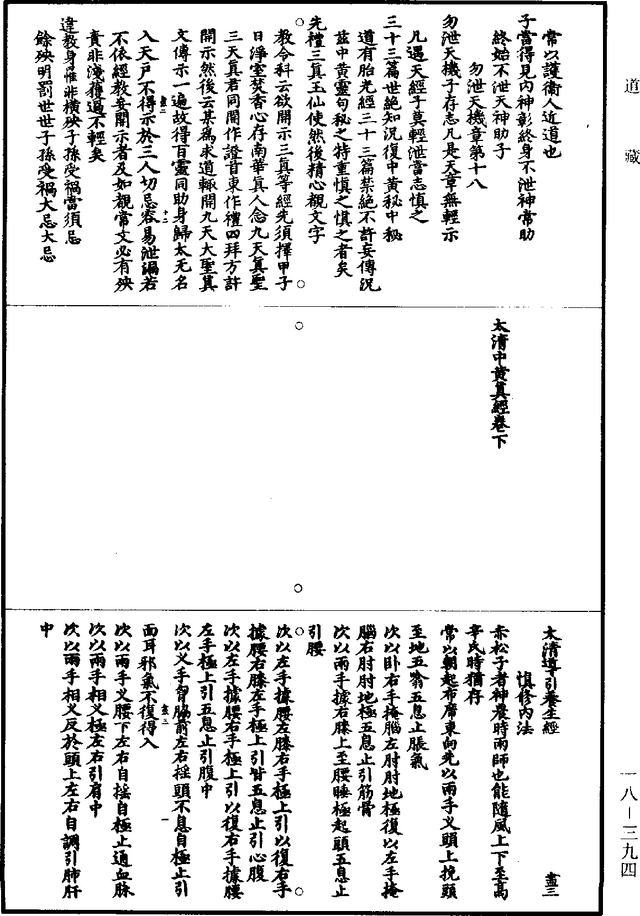 道藏
常以護衛人近道也
子當得見內神彰終身不泄神常助
終始不泄天神助子
勿泄天機章第十八
勿泄天機子存志凡是天章無輕示
凡遇天經子莫輕泄當志慎之
三十三篇世絕知況復中黃秘中秘
道有胎光經三十三篇禁絕不許妄傳況
茲中黃靈句秘之特重慎之慎之者矣
先禮三真玉仙使然後精心觀文字
教令科云欲開示三真等經先須擇甲子
日淨室焚香心存南華真人念九天真聖
三天真君同閞作證首東作禮四拜方許
開示然後云某為求道輙開九天大聖真
文傳示一遍故得百靈同助身歸太无名
入天戶不得示於三人切忌容易泄漏若
不依經教妄開示者及如觀常文必有殃
責非淺獲過不輕矣
違教身罹非橫殃子孫受禍當須忌
餘殃明罰世世子孫受禍大忌大忌
太清中黃真經卷下
太清導引養生經
慎修內法
赤松子者神農時雨師也能隨風上下至高
辛氏時猶存
常以朝起布席東向先以兩手叉頭上挽頭
至地五噏五息止脹氣
次以卧右手掩腦左肘肘地極復以左手掩
腦右肘肘地極五息止引筋骨
次以兩手據右膝上至腰睡極起頭五息止
引腰
次以左手據腰左膝右手極上引以復右手
據腰右膝左手極上引皆五息止引心腹
次以左手據腰右手極上引以復右手據腰
左手極上引五息止引腹中
次以叉手胷脇前左右摇頭不息自極止引
面耳邪氣不復得入
次以兩手叉腰下左右自摇自極止通血脉
次以兩手相叉極左右引肩中
次以兩手相叉反於頭上左右自調引肺肝
中
盡三
一八—三九四